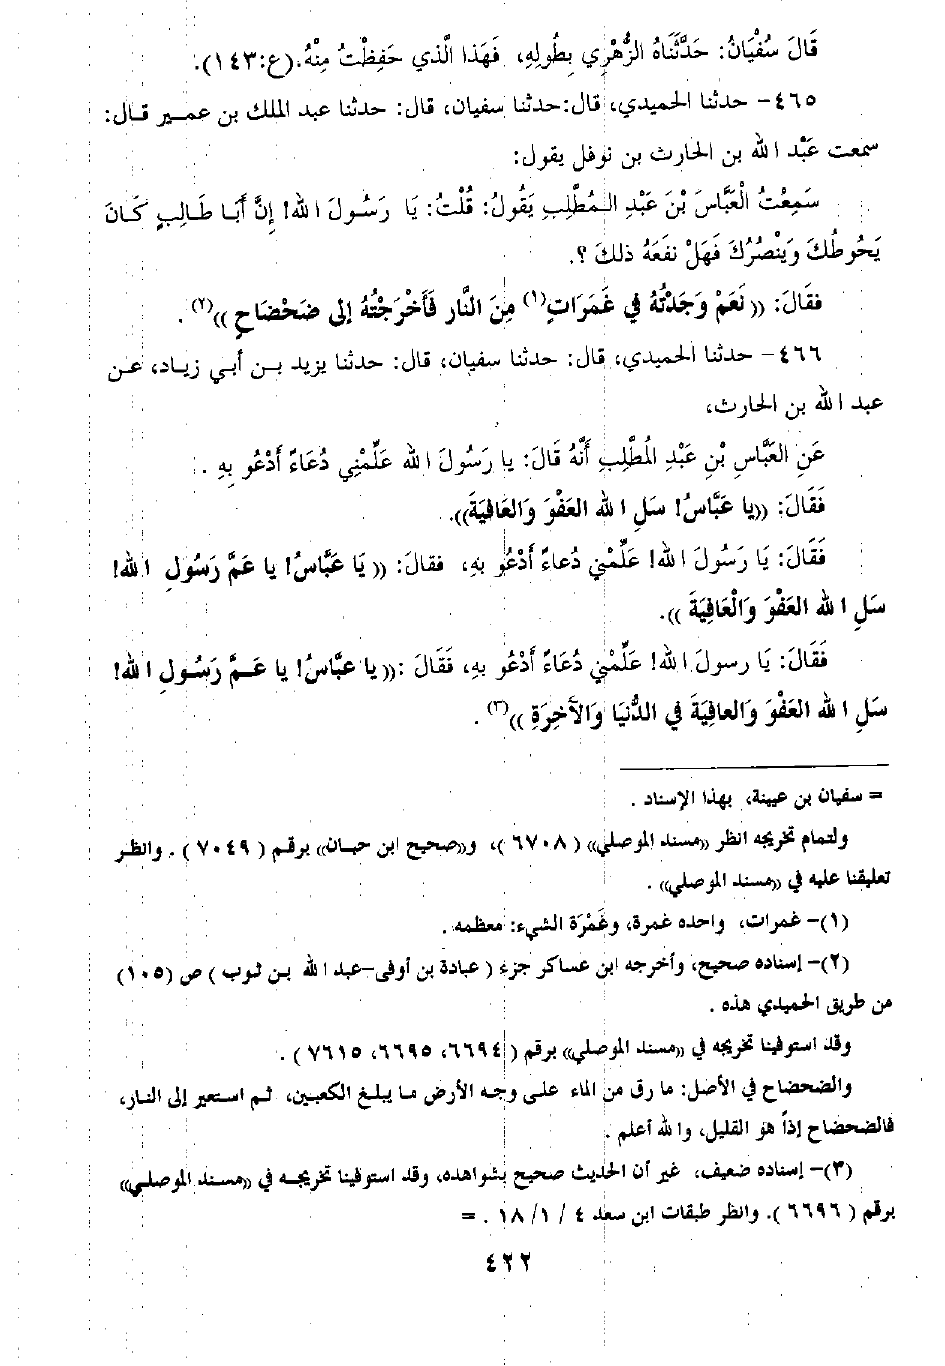 قَالَ سُفْيَانُ: حَدَّثَنَاهُ الزُّهْرِي بِطُولِهِ، فَهَذَا الَّذي حَفِظْتُ مِنْهُ. (ع:١٤٣).
٤٦٥- حدثنا الحميدي، قال: حدثنا سفيان، قال: حدثنا عبد الملك بن عمير قال:
سمعت عَبْد الله بن الحارث بن نوفل يقول:
سَمِعْتُ الْعَبَّاسَ بْنَ عَبْدِ الـمُطَّلِبِ يَقُولُ: قُلْتُ: يَا رَسُولَ الله! إِنَّ أَبَا طَالِبٍ كَانَ
يَحُوطُكَ وَيَنْصُرُكَ فَهَلْ نَفَعَهُ ذلكَ ؟.
فقَالَ: (( نَعَمْ وَجَدْتُهُ في غَمَرَاتٍ(١) مِنَ النَّار فَأَخْرَجْتُهُ إلى ضَحْضَاحٍ ))(٢) .
٤٦٦- حدثنا الحميدي، قال: حدثنا سفيان، قال: حدثنا يزيد بن أبي زياد، عن
عبد الله بن الحارث،
عَنِ العَبَّاسِ بْنِ عَبْدِ المُطَّلِبِ أَنَّهُ قَالَ: يا رَسُولَ الله عَلِّمْنِي دُعَاءً أَدْعُو بِهِ .
فَقَالَ: ((يا عَبَّاسُ! سَلِ الله العَفْوَ وَالعَافِيَةَ)).
فَقَالَ: يَا رَسُولَ الله! عَلِّمْنِي دُعاءً أَدْعُو بهِ، فقالَ: (( يَا عَبَّاسُ! يا عَمَّ رَسُولِ الله!
سَلِ الله العَفْوَ وَالْعَافِيَةَ )).
فَقَالَ: يَا رسولَ الله! عَلِّمْنِي دُعَاءً أَدْعُو بِهِ، فَقَالَ :(( يا عبَّاسُ! يا عَمَّ رَسُولِ الله!
سَلِ الله العَفْوَ وَالعافِيَةَ في الدُّنيَا وَالآخِرَةِ ))(٣) .
= سفيان بن عيينة، بهذا الإسناد .
ولتمام تخريجه انظر ((مسند الموصلي)) ( ٦٧٠٨ )، و((صحيح ابن حبان)) برقم ( ٧٠٤٩ ) . وانظر
تعليقنا عليه في ((مسند الموصلي)) .
(١)- غمرات، واحده غمرة، وغَمْرَة الشيء: معظمه .
(٢)- إسناده صحيح، وأخرجه ابن عساكر جزء ( عبادة بن أوفى-عبد الله بن ثوب ) ص (١٠٥)
من طريق الحميدي هذه .
وقد استوفينا تخريجه في ((مسند الموصلي)) برقم ( ٦٦٩٤، ٦٦٩٥، ٧٦١٥ ) .
والضحضاح في الأصل: ما رق من الماء على وجه الأرض ما يبلغ الكعبين، ثم استعير إلى النار،
فالضحضاح إذاً هو القليل، والله أعلم .
(٣)- إسناده ضعيف، غير أن الحديث صحيح بشواهده، وقد استوفينا تخريجه في ((مسند الموصلي))
برقم ( ٦٦٩٦ ). وانظر طبقات ابن سعد ٤ / ١/ ١٨ . =
٤٢٢